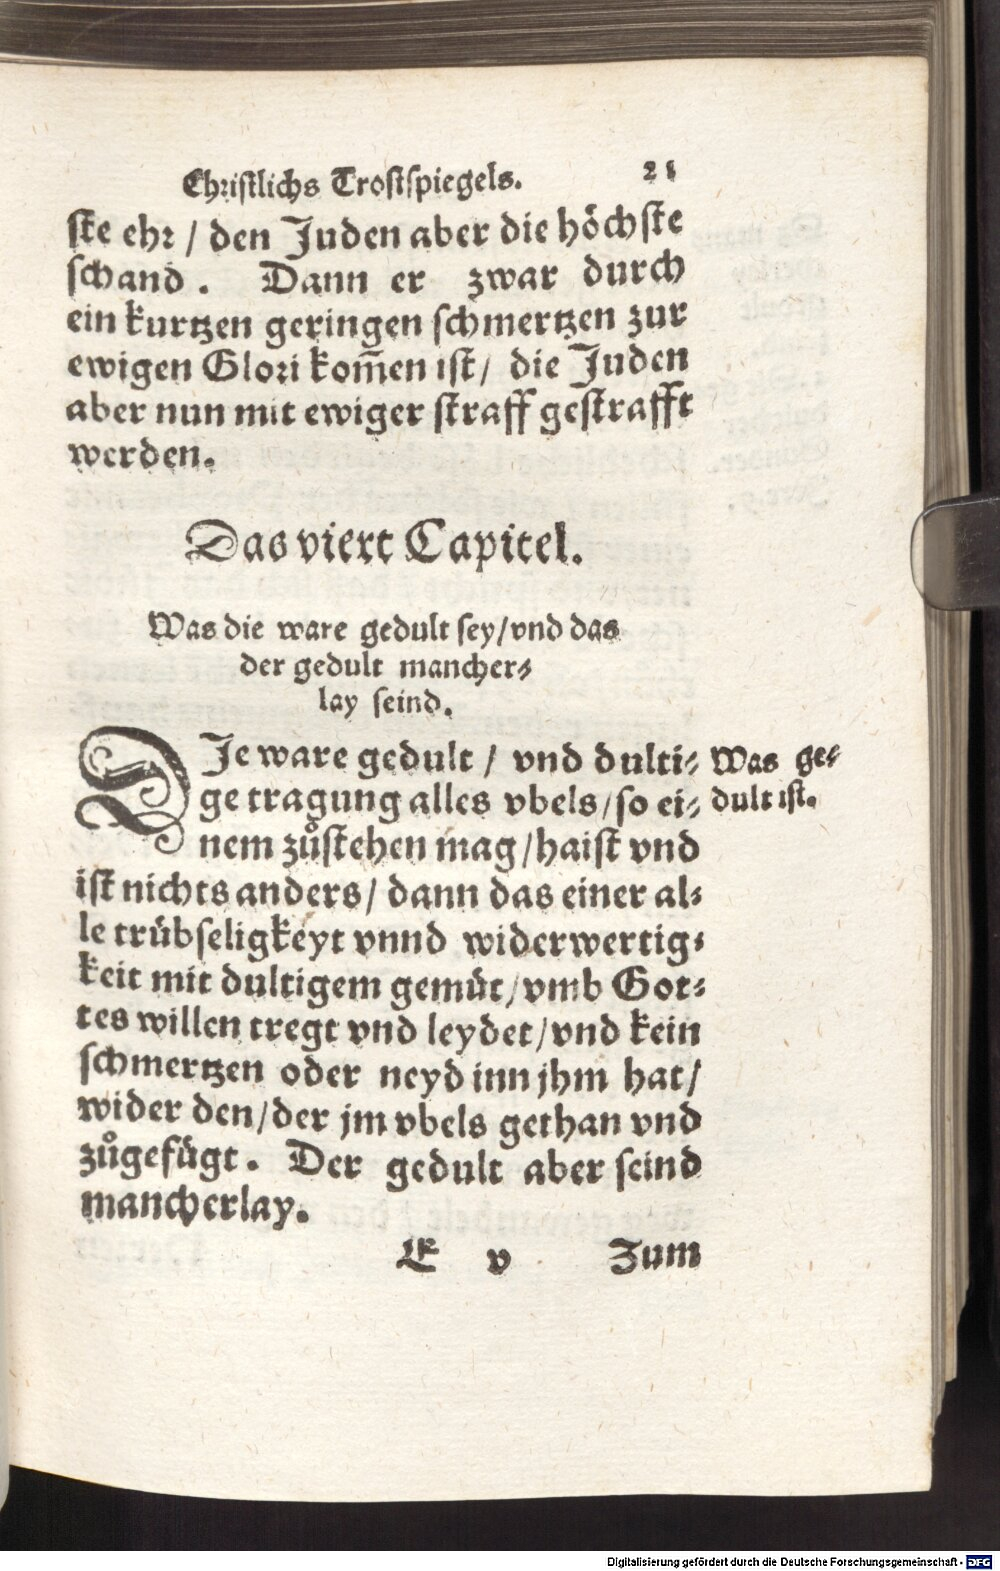 Christlichs Trostspiegels. 21
ste ehr / den Juden aber die höchste
schand. Dann er zwar durch
ein kurtzen geringen schmertzen zur
ewigen Glori kom̃en ist / die Juden
aber nun mit ewiger straff gestrafft
werden.
Das viert Capitel.
Was die ware gedult sey / vnd das
der gedult mancher⸗
lay seind.
DJe ware gedult / vnd dulti⸗
ge tragung alles vbels / so ei⸗
nem zůstehen mag / haist vnd
ist nichts anders / dann das einer al⸗
le trübseligkeyt vnnd widerwertig⸗
keit mit dultigem gemüt / vmb Got⸗
tes willen tregt vnd leydet / vnd kein
schmertzen oder neyd inn jhm hat /
wider den / der jm vbels gethan vnd
zůgefügt. Der gedult aber seind
mancherlay.
Was ge⸗
dult ist.
E v Zum
Digitalisierung gefördert durch die Deutsche Forschungsgemeinschaft - DFG